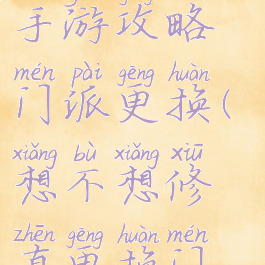 手游攻略
mén pài gēng huàn
门派更换(
xiǎng bù xiǎng xiū
想不想修
zhēn gēng huàn mén
真更换门